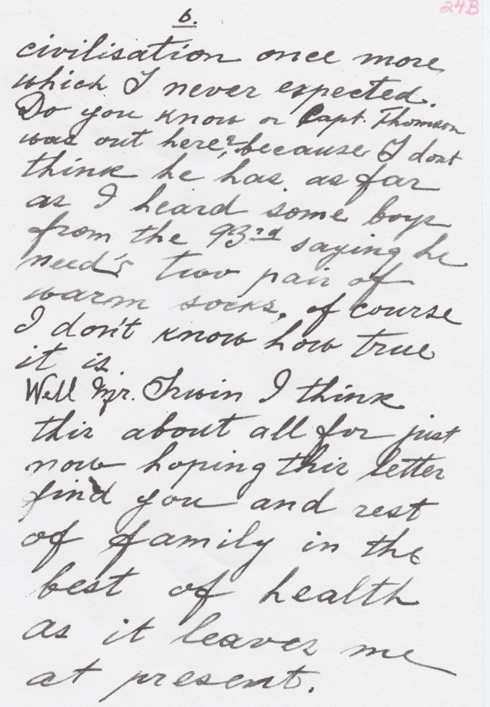 6.
24B
civilisation once more
which I never expected.
Do you know or Capt. Thomson
was out here? because I dont
think he has. as far
as I heard some boys
from the 93rd saying he
need's two pair of
warm socks, of course
I don't know how true
it is.
Well Mr. Irwin I think
this about all for just
now hoping this letter
find you and rest
of family in the
best of health
as it leaves me
at present.